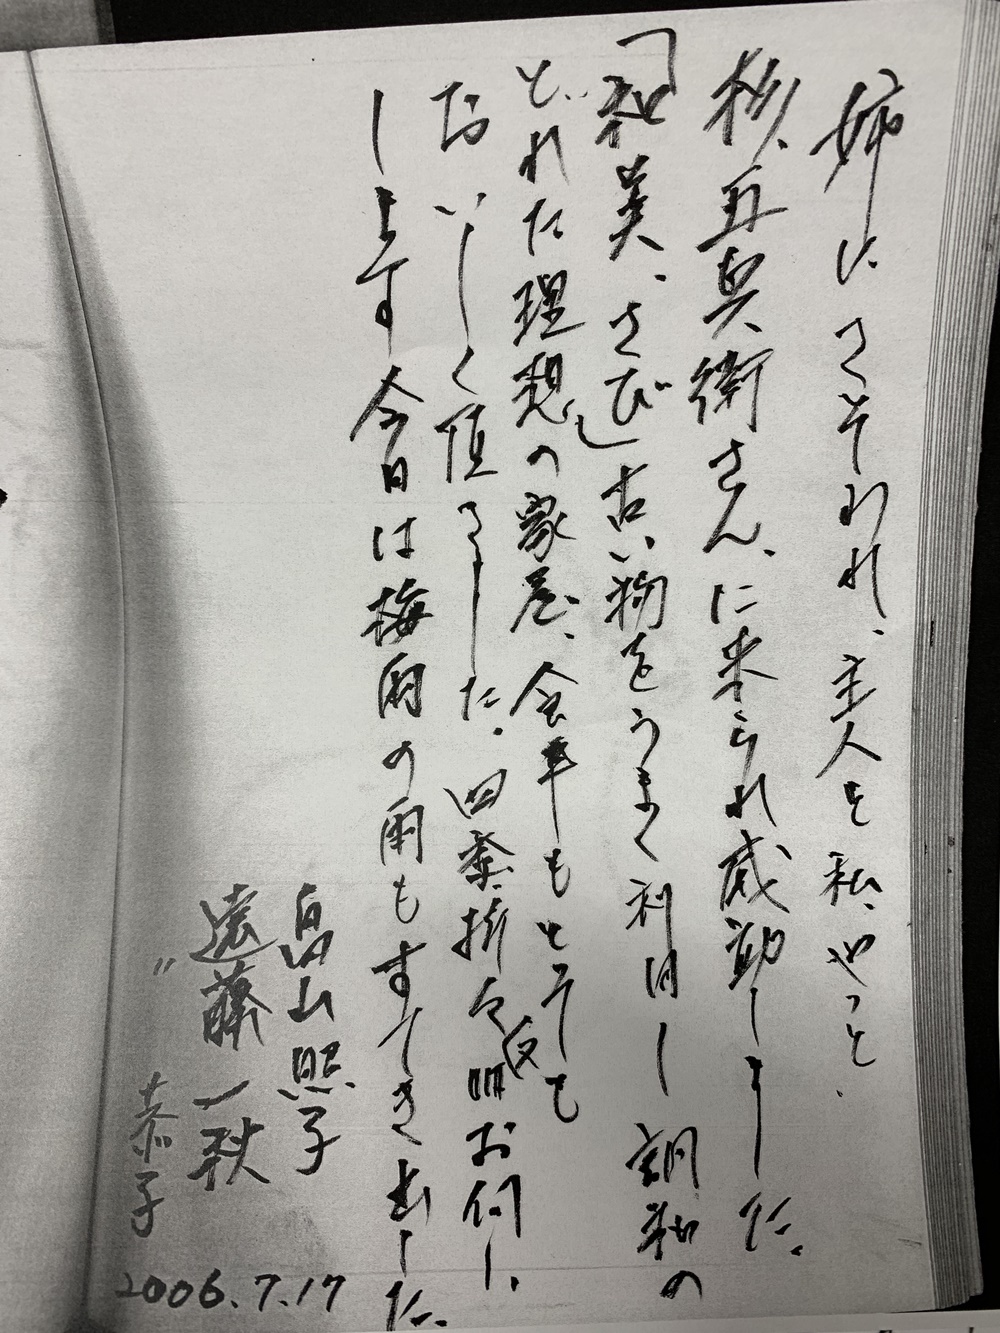 姉にさそわれ、主人と私、やっと、
杉、五兵衛さん、に来られ感動しました。
「和美、さび」古い物をうまく利用し調和の
とれた理想の家屋、食事もとっても
おいしく頂きました。四季折々又お伺い
します今日は梅雨の雨もすてきでした。
畠山照子
遠藤一秋
〃 恭子
2006.7.17